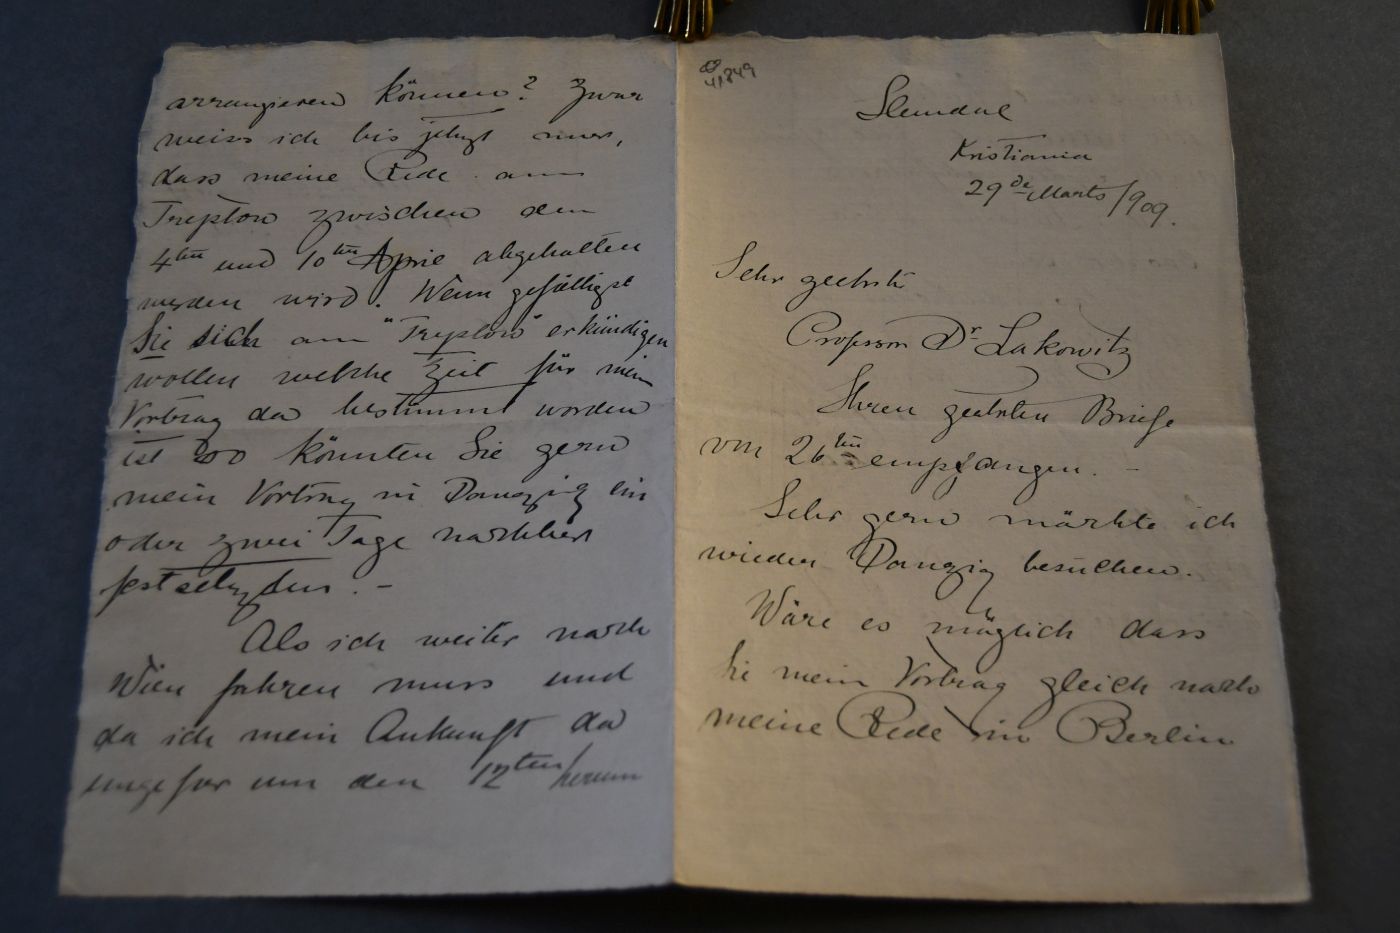 41849
Slemdal
Kristiania
29de Marts/909.
Sehr geehrte
Professor Dr Lakowitz
Ihren geehrten Briefe
von 26ten empfangen. -
Sehr gern märhte ich
wieder Danzig besuchen.
Wäre es möglich dass
Sie mein Vortrag gleich nach
meine Rede in Berlin
arrangieren können? Zwar
weiss ich bis jetzt nur,
dass meine Rede am
Treptow zwischen den
4ten und 10ten Aprie abgehalten
werden wird. Wenn gefälligst
Sie sich am "Treptow" erkündigen
wollen welche Zeit für mein
Vortrag da bestimmt worden
ist so könnten Sie gern
mein Vortrag in Danzig ein
oder zwei Tage nachher
festsetzten. -
Als ich weiter nach
Wien fahren muss und
da ich mein Ankunft da
ungefer um den 12ten herum